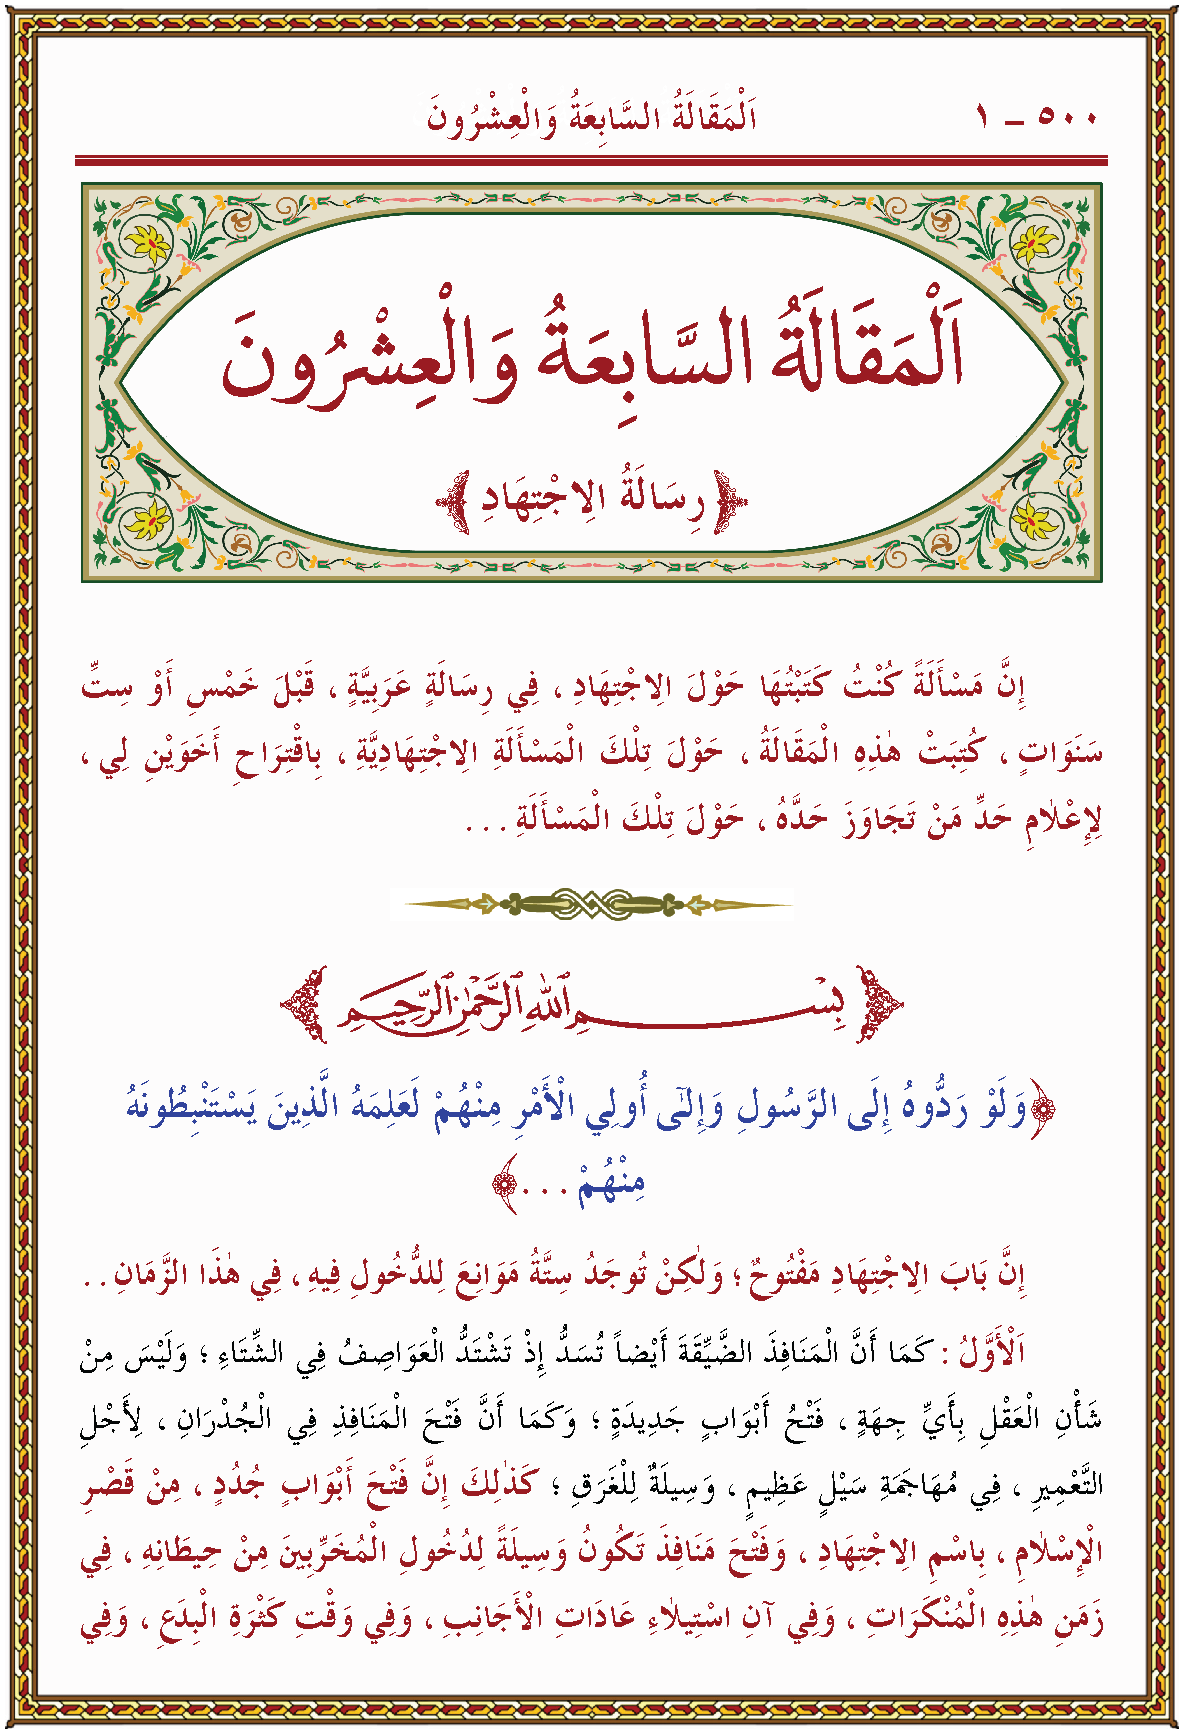 ٥٠٠ ـ ١ اَلْمَقَالَةُ السَّابِعَةُ وَالْعِشْرُونَ
اَلْمَقَالَةُ السَّابِعَةُ وَالْعِشْرُونَ
رِسَالَةُ الِاجْتِهَادِ
إِنَّ مَسْأَلَةً كُنْتُ كَتَبْتُهَا حَوْلَ الِاجْتِهَادِ ، فِي رِسَالَةٍ عَرَبِيَّةٍ ، قَبْلَ خَمْسِ أَوْ سِتِّ
سَنَوَاتٍ ، كُتِبَتْ هٰذِهِ الْمَقَالَةُ ، حَوْلَ تِلْكَ الْمَسْأَلَةِ الِاجْتِهَادِيَّةِ ، بِاقْتِرَاحِ أَخَوَيْنِ لِي ،
لِإِعْلَامِ حَدِّ مَنْ تَجَاوَزَ حَدَّهُ ، حَوْلَ تِلْكَ الْمَسْأَلَةِ . . .
بِسْمِ ٱللهِ ٱلرَّحْمٰنِ ٱلرَّحِيمِ
﴿وَلَوْ رَدُّوهُ إِلَى الرَّسُولِ وَإِلٰٓى أُولِي الْأَمْرِ مِنْهُمْ لَعَلِمَهُ الَّذِينَ يَسْتَنْبِطُونَهُ
مِنْهُمْ . . .﴾
إِنَّ بَابَ الِاجْتِهَادِ مَفْتُوحٌ ؛ وَلٰكِنْ تُوجَدُ سِتَّةُ مَوَانِعَ لِلدُّخُولِ فِيهِ ، فِي هٰذَا الزَّمَانِ . .
اَلْأَوَّلُ : كَمَا أَنَّ الْمَنَافِذَ الضَّيِّقَةَ أَيْضاً تُسَدُّ إِذْ تَشْتَدُّ الْعَوَاصِفُ فِي الشِّتَاءِ ؛ وَلَيْسَ مِنْ
شَأْنِ الْعَقْلِ بِأَيِّ جِهَةٍ ، فَتْحُ أَبْوَابٍ جَدِيدَةٍ ؛ وَكَمَا أَنَّ فَتْحَ الْمَنَافِذِ فِي الْجُدْرَانِ ، لِأَجْلِ
التَّعْمِيرِ ، فِي مُهَاجَمَةِ سَيْلٍ عَظِيمٍ ، وَسِيلَةٌ لِلْغَرَقِ ؛ كَذٰلِكَ إِنَّ فَتْحَ أَبْوَابٍ جُدُدٍ ، مِنْ قَصْرِ
الْإِسْلَامِ ، بِاسْمِ الِاجْتِهَادِ ، وَفَتْحَ مَنَافِذَ تَكُونُ وَسِيلَةً لِدُخُولِ الْمُخَرِّبِينَ مِنْ حِيطَانِهِ ، فِي
زَمَنِ هٰذِهِ الْمُنْكَرَاتِ ، وَفِي آنِ اسْتِيلَاءِ عَادَاتِ الْأَجَانِبِ ، وَفِي وَقْتِ كَثْرَةِ الْبِدَعِ ، وَفِي